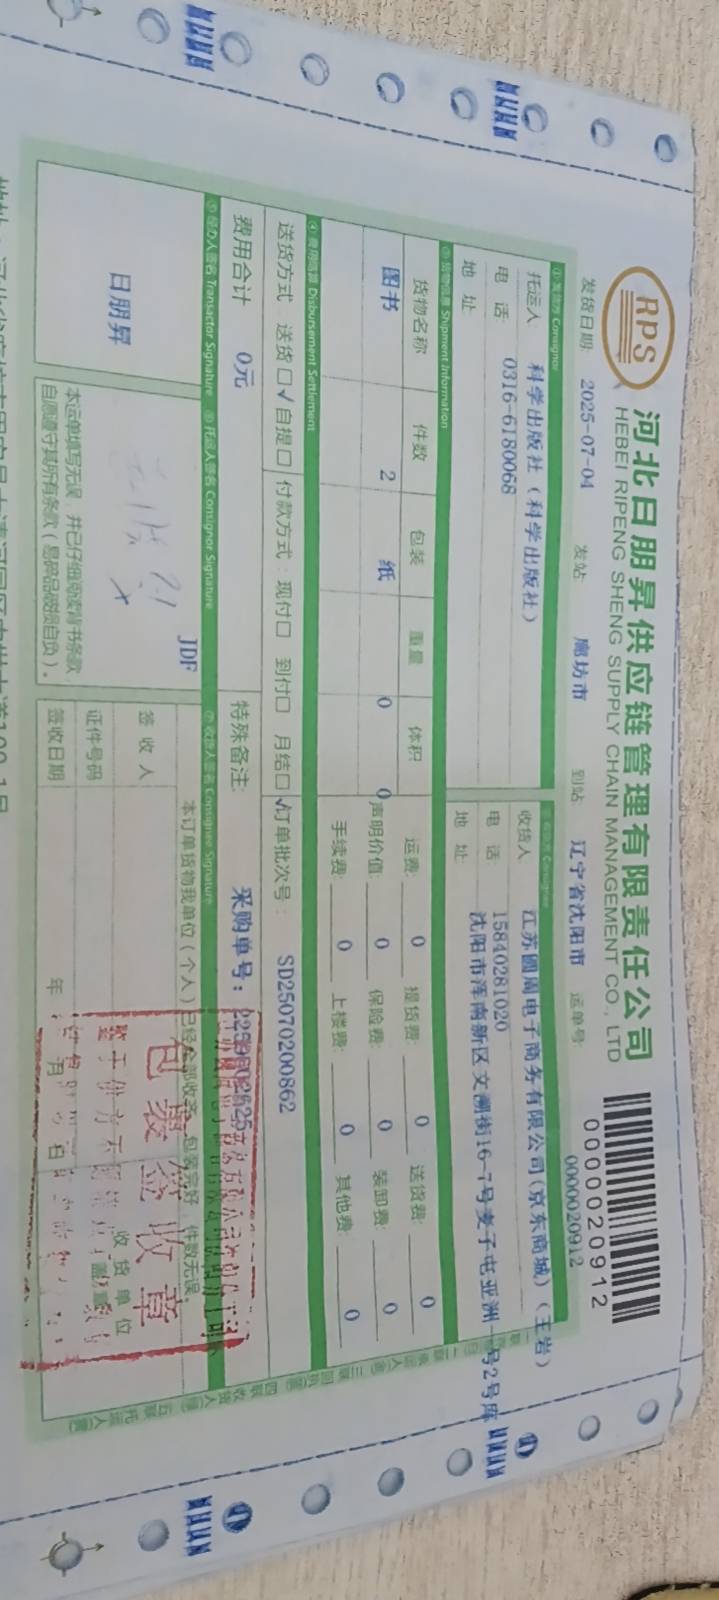 RPS
河北日朋昇供应链管理有限责任公司
HEBEI RIPENG SHENG SUPPLY CHAIN MANAGEMENT CO., LTD
0000020912
发货日期: 2025-07-04 发站: 廊坊市 到站: 辽宁省沈阳市 运单号: 0000020912
① 发货方 Consignor
② 收货方 Consignee
托运人 科学出版社（科学出版社）
收货人 江苏圆周电子商务有限公司(京东商城)（王岩）
电 话: 0316-6180068
电 话 15840281020
地 址
地 址 沈阳市浑南新区文溯街16-7号麦子屯亚洲一号2号库
③ 货物信息 Shipment Information
货物名称 件数 包装 重量 体积
运费: 0 提货费: 0 送货费: 0
图书 2 纸 0 0
声明价值: 0 保险费: 0 装卸费: 0
手续费: 0 上楼费: 0 其他费: 0
④ 费用结算 Disbursement Settlement
送货方式 送货□√自提□ 付款方式: 现付□ 到付□ 月结□√
订单批次号: SD25070200862
费用合计 0元
特殊备注: 采购单号:
⑤ 经办人签名 Transactor Signature
⑥ 托运人签名 Consignor Signature
⑦ 收货人签名 Consignee Signature
日朋昇
JDF
本运单填写无误，并已仔细阅读背书条款，
自愿遵守其所有条款（易碎品破损自负）。
本订单货物我单位（个人）已经全部收齐，包装完好，件数无误。
签 收 人
收货单位
证件号码
签收日期
年 月 日
包裹签收章